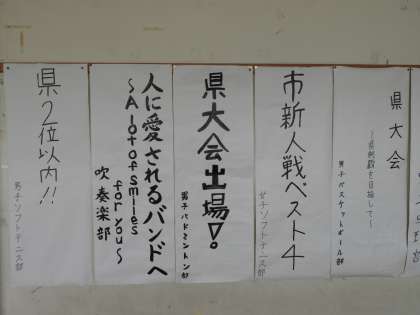 県2位以内!!
男子ソフトテニス部
人に愛されるバンドへ
～A lot of smiles
for you～
吹奏楽部
県大会出場!。
男子バドミントン部
市新人戦ベスト4
女子ソフトテニス部
県大会
男子バスケットボール部